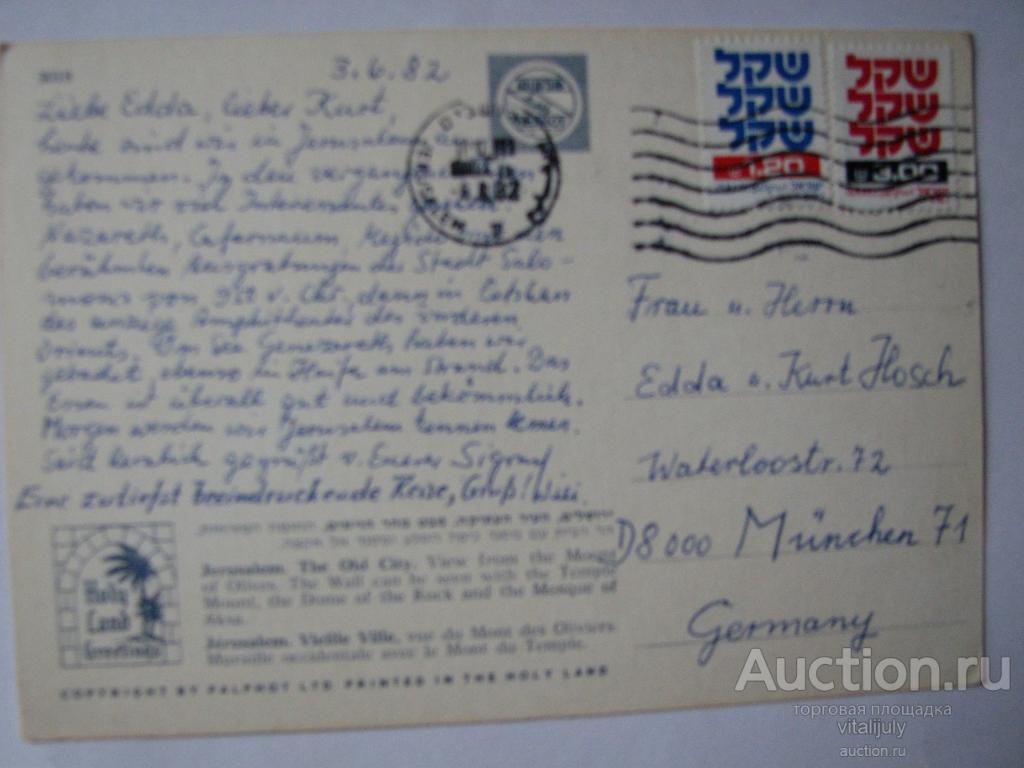 3.6.82
Liebe Edda, lieber Kurt,
heute sind wir in Jerusalem an-
gekommen. In den vergangenen
haben wir viel Interessantes
Nazareth, Cafarnaum,
berühmten Ausgrabungen der Stadt Salo-
mons von v. Chr., dann in
das einzige Amphitheater des vorderen
Orients. Am See Genezareth haben wir
gebadet, ebenso in Haifa am Strand. Das
Essen ist überall gut und bekömmlich.
Morgen werden wir Jerusalem kennen lernen.
Seid herzlich gegrüßt v. Eurer
Eine zutiefst beeindruckende Reise, Gruß! Willi.
שקל
שקל
שקל
1.20
שקל
שקל
שקל
3.00
Frau u. Herrn
Edda u. Kurt Hosch
Waterloostr. 72
D8000 München 71
Germany
Holy
Land
Greetings
Jerusalem. The Old City. View from the Mount
of Olives. The Wall can be seen with the Temple
Mount, the Dome of the Rock and the Mosque of
Aksa.
Jerusalem. Vieille Ville, vue du Mont des Oliviers.
Muraille occidentale avec le Mont du Temple.
COPYRIGHT BY PALPHOT LTD. PRINTED IN THE HOLY LAND
Auction.ru
торговая площадка
vitalijuly
auction.ru